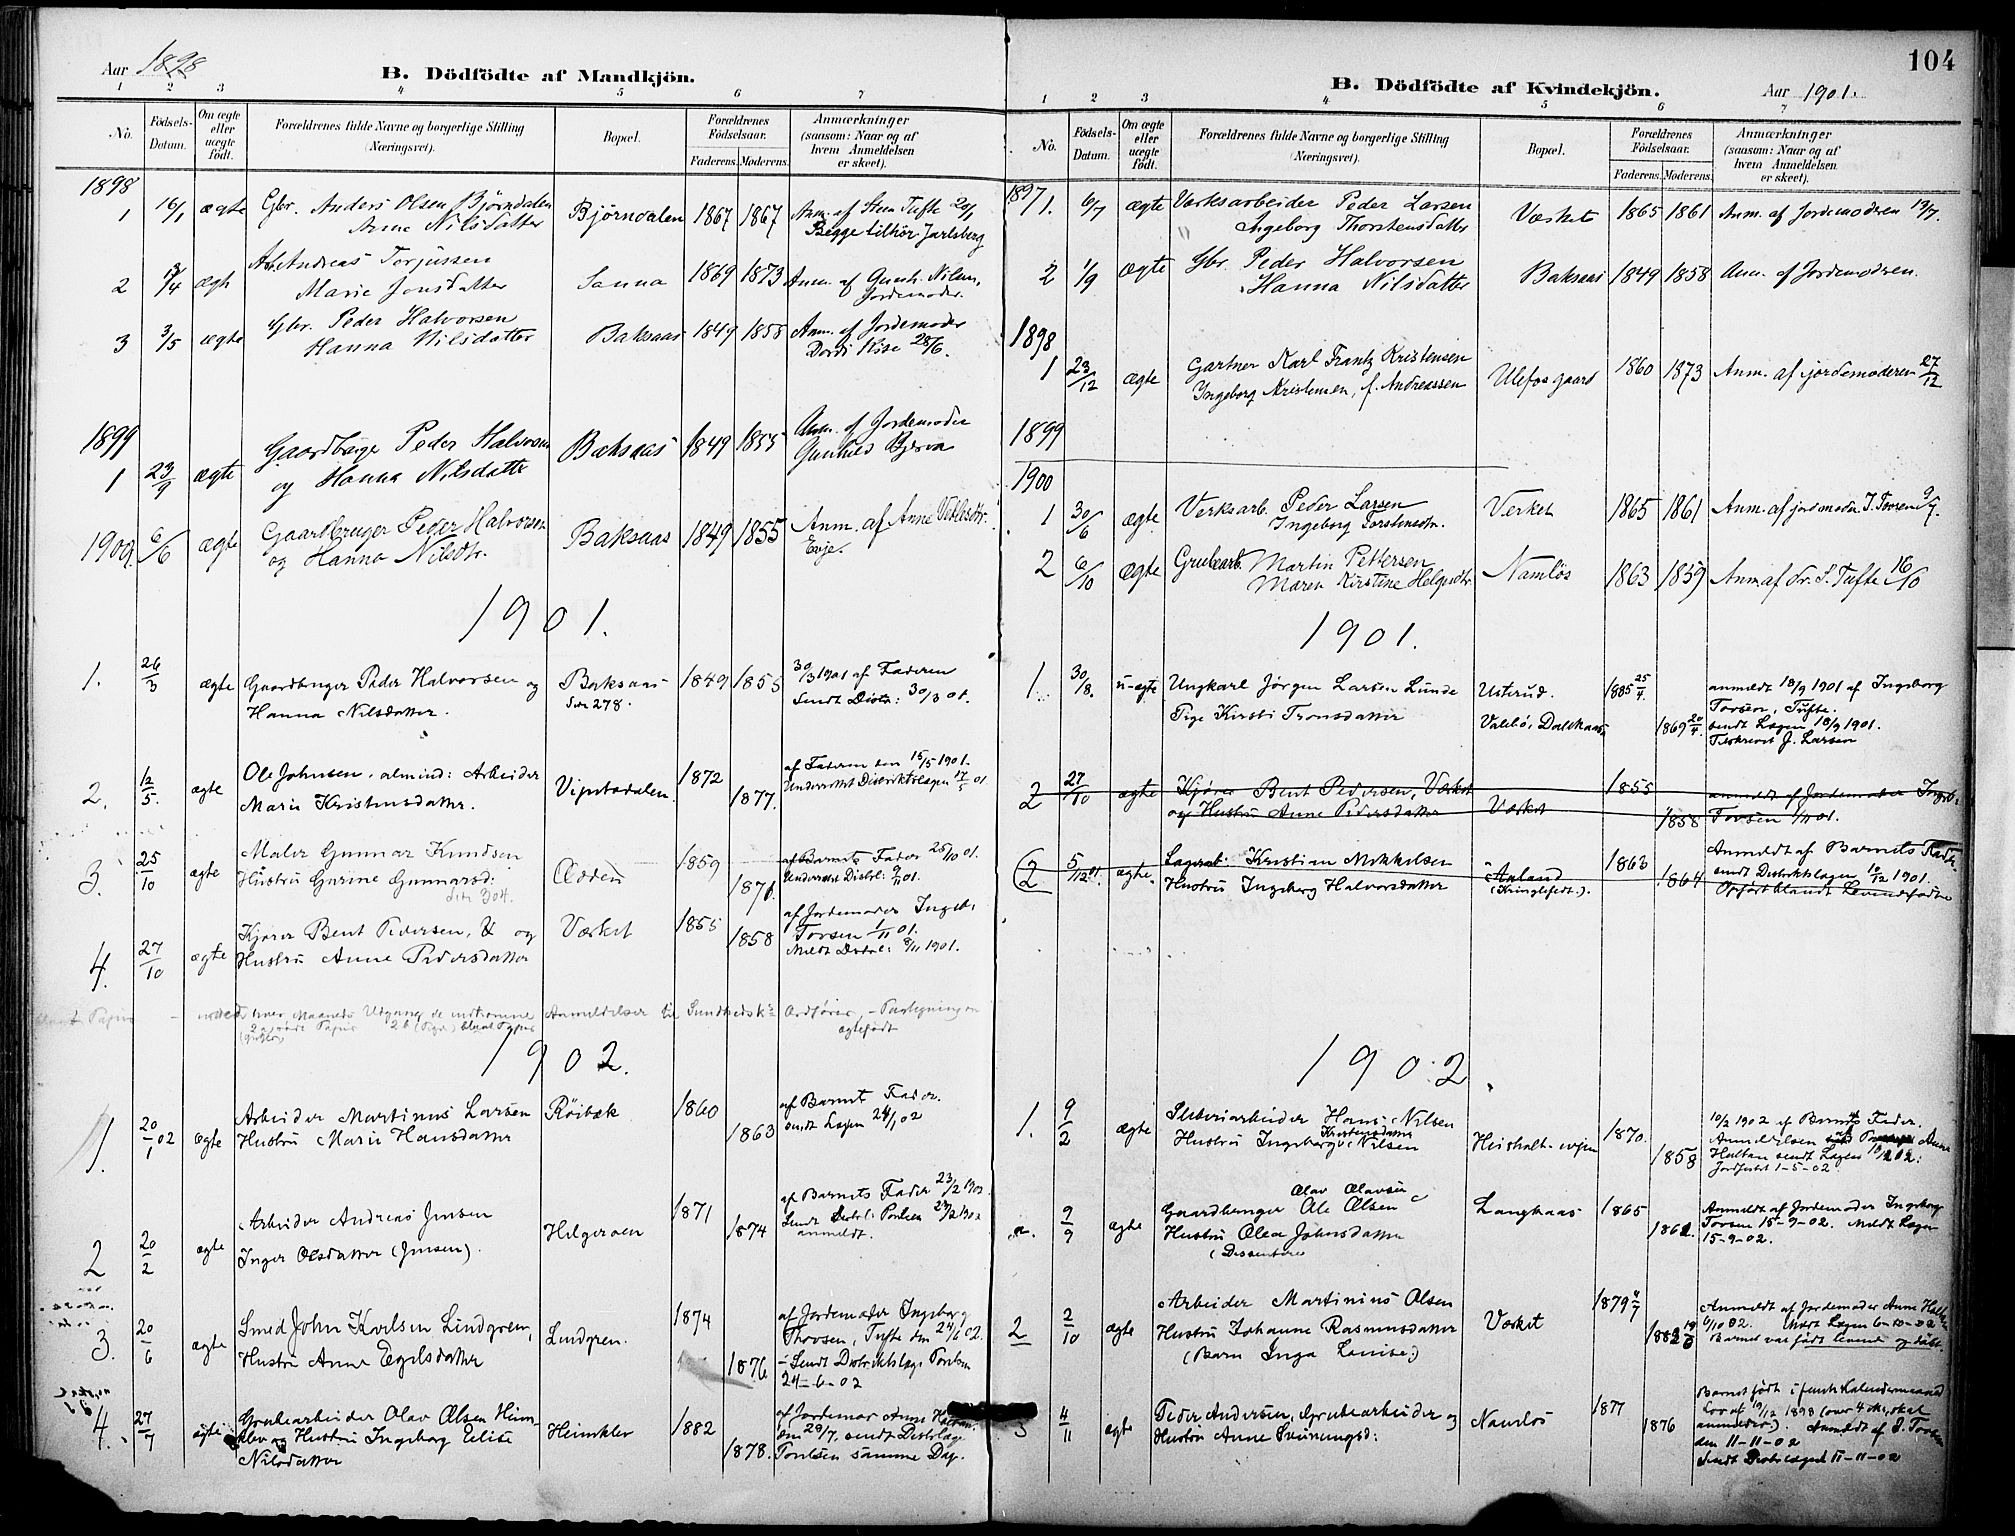 Aar 1898
B. Dödfödte af Mandkjön.
1 2 3 4 5 6 7
No. Födsels-Datum. Om ægte eller uægte födt. Forældrenes fulde Navne og borgerlige Stilling (Næringsvei). Bopæl. Forældrenes Födselsaar. Faderens. Moderens. Anmærkninger (saasom: Naar og af hvem Anmeldelsen er skeet).
1898
1 16/1 ægte Gbr. Anders Olsen Bjørndalen Bjørndalen 1867 1867 Anm. af Sten Tufte 20/1
Anne Nilsdatter Begge tilhør Jarlsberg
2 ægte Andreas Torjussen Sanna 1869 1873 Anm. af Gunh. Nilsen,
Marie Jonsdatter Jordemoder.
3 3/5 ægte Gbr. Peder Halvorsen Baksaas 1849 1855 Anm. af Jordemoder
Hanna Nilsdatter Dordi Kise 28/6.
1899
1 23/9 ægte Gaardbruger Peder Halvorsen Baksaas 1849 1855 Anm. af Jordemoder
og Hanna Nilsdatter Gunhild Bjerva
1900 6/6 ægte Gaardbruger Peder Halvorsen Baksaas 1849 1855 Anm. af Anne
og Hanna Nilsdtr. Evje.
1901.
1. 26/3 ægte Gaardbruger Peder Halvorsen og Baksaas 1849 1855 30/3 1901 af Faderen
Hanna Nilsdatter. 278. Sendt Distr: 30/3 01.
2. 12/5. ægte Ole Johnsen, almind: Arbeider Vipetodalen. 1872 af Faderen den 15/5 1901.
Marie Kristensdatter. 1877. Underrettet Distriktslægen 17/5 01
3. 25/10 ægte Maler Gunnar Knudsen 1859 af Barnets Fader 25/10 01.
Hustru Gurine Gunnarsd: 1871. Underrettet Distrl:
304.
4. 27/10 ægte Kjører Bent Pedersen, og Værket 1855 af Jordemoder Ingeb.
Hustru Anne Pedersdatter 1858 Torsen 1/11 01.
Meldt Distrl: 8/11 1901.
1902.
1. 20/1 02 ægte Arbeider Martinus Larsen Røibæk 1860 af Barnets Fader.
Hustru Marie Hansdatter 1863 sendt Lægen 24/1 02
2 20/2 ægte Arbeider Andreas Jensen Helgeroen 1871 af Barnets Fader 23/2 1902.
Inger Olsdatter (Jensen). 1874 Sendt Distrl: Poulsen 24/2 1902
anmeldt.
3. 20/6 ægte Smed John Karlsen Lindgren, Lindgren. 1874 af Jordemoder Ingeborg
Hustru Anne Egilsdatter 1876 Thorsen, Tufte den 24/6 02.
– Sendt Distriktslæge Poulsen
24–6–02
4. 27/7 ægte Grubearbeider Olav Olsen Heim- Heimklev 1882 af Jordemor Anne Holtan
klev og Hustru Ingeborg Elise 1878. den 29/7, sendt Distrlæge
Nilsdatter Poulsen samme Dag.
104
B. Dödfödte af Kvindekjön.
Aar 1901.
1 2 3 4 5 6 7
No. Födsels-Datum. Om ægte eller uægte födt. Forældrenes fulde Navne og borgerlige Stilling (Næringsvei). Bopæl. Forældrenes Födselsaar. Faderens. Moderens. Anmærkninger (saasom: Naar og af hvem Anmeldelsen er skeet).
1897
1. 6/7 ægte Værksarbeider Peder Larsen Værket 1865 1861 Anm. af Jordemoderen 19/7.
Ingeborg Thorstensdatter
2 1/9 ægte Gbr. Peder Halvorsen Baksaas 1849 1858 Anm. af Jordemodren.
Hanna Nilsdatter
1898
1 23/12 ægte Gartner Karl Frantz Kristensen Ulefos gaard 1860 1873 Anm. af jordemoderen 27/12
Ingeborg Kristensen, f. Andreassen
1899
1900
1 30/6 ægte Verksarb. Peder Larsen Verket 1865 1861 Anm. af jordemoder I. Torsen 9/7.
Ingeborg Torstensdtr.
2 6/10 ægte Grubearb. Martin Pettersen Namløs 1863 1859 Anm. af dr. S. Tufte 16/10
Maren Kirstine Helgesdtr.
1901.
1 30/8. u-ægte Ungkarl Jørgen Larsen Lunde Usterud. 1885 25/4. anmeldt 18/9 1901 af Ingeborg
Pige Kirsti Tronsdatter Valebø, Dalskaas 1869 20/4. Torsen, Tufte.
sendt Lægen 18/9 1901.
Tilskrevet J. Larsen
2 27/10 ægte Kjører Bent Pedersen, Værket Værket 1855 anmeldt af Jordemoder Ingeb.
og Hustru Anne Pedersdatter 1858 Torsen 1/11 01.
(2 5/12 01. ægte. Kristian Mikkelsen Aaland 1863 Anmeldt af Barnets Fader
Hustru Ingeborg Halvorsdatter (Kringlefedt.). 1864 sendt Distriktslægen 10/12 1901.
Opført blandt Levendefødte
1902.
1. 9/2 ægte Sliberiarbeider Hans Nilsen 1870. 10/2 1902 af Barnets Fader.
Kristensdatter
Hustru Ingeborg Nilsen 1858 Anmeldelsen Anne
Holtan sendt Lægen 10/2 02:
Jordfestet 1–5–02.
9/9 ægte Olav Olavsen
Gaardbruger Ole Olsen Langkaas 1865 Anmeldt af Jordemoder Ingeborg
Hustru Olea Johnsdatter 1862. Torsen 15–9–02. Meldt Lægen
(Dissentere 15–9–02.
2 2/10 ægte Arbeider Martinius Olsen Værket 1879 4/7 Anmeldt af Jordemoder Anne Holtan
Hustru Johanne Rasmusdatter 1882 6/10 02. Meldt Lægen 6–10–02
(Barn Inga Louise.) Barnet var født levende og døbt.
3 4/11 ægte Peder Andersen, Grubearbeider og Namløs 1877 Barnet født i femte Kalendermaaned
Hustru Anne Sveinungsd: 1876 Lov af 19/12 1898 (over 4 skal
anmeldes). Anmeldt af I. Torsen
den 11–11–02
Sendt Distrlægen 11–11–02